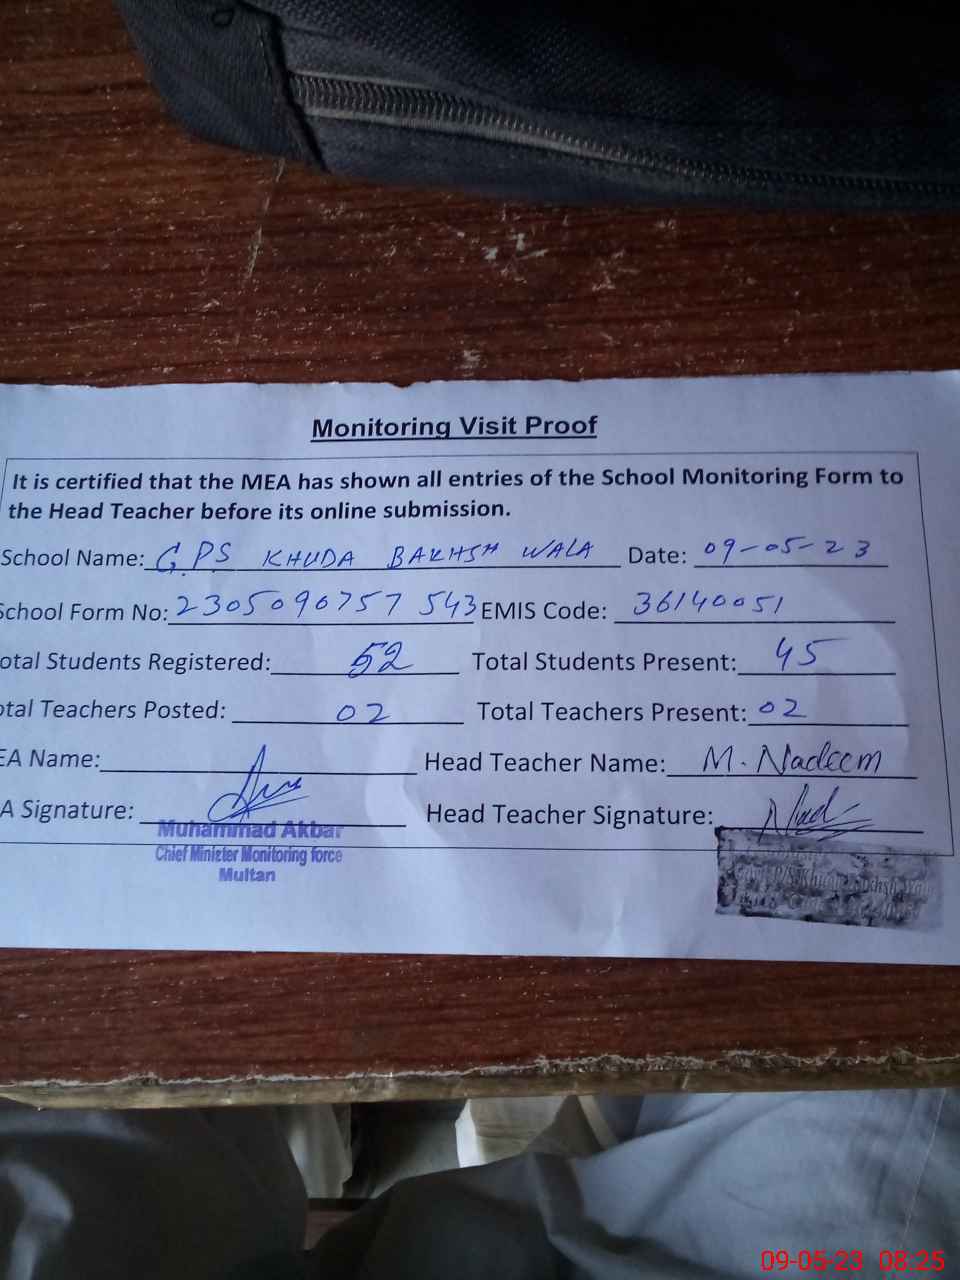 Monitoring Visit Proof
It is certified that the MEA has shown all entries of the School Monitoring Form to
the Head Teacher before its online submission.
School Name: G.P.S KHUDA BAKHSH WALA Date: 09-05-23
School Form No: 2305090757543 EMIS Code: 36140051
otal Students Registered: 52 Total Students Present: 45
otal Teachers Posted: 02 Total Teachers Present: 02
EA Name: Head Teacher Name: M. Nadeem
A Signature: Head Teacher Signature: Nad
Muhammad Akbar
Chief Minister Monitoring force
Multan
Govt. P/S Khuda Bakhsh Wala
09-05-23 08:25